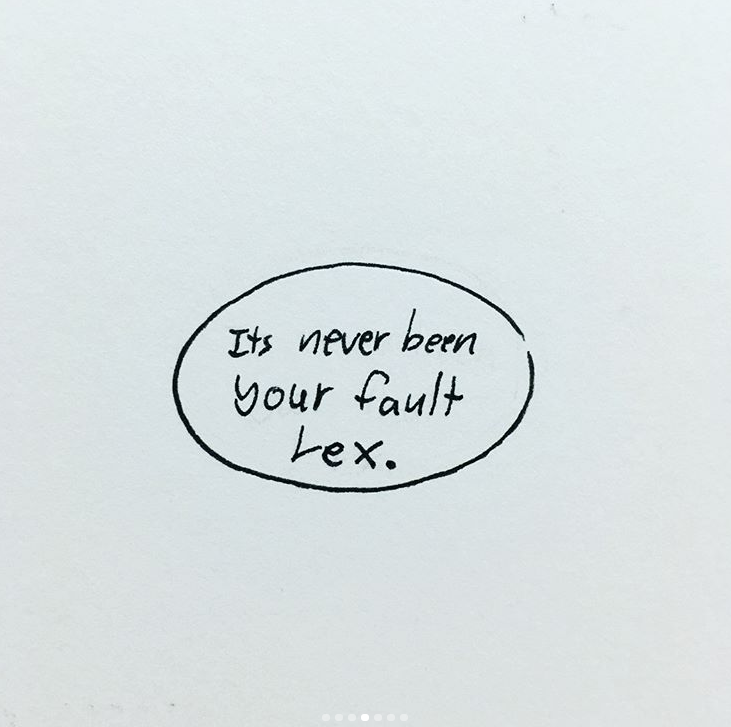 Its never been
your fault
Lex.